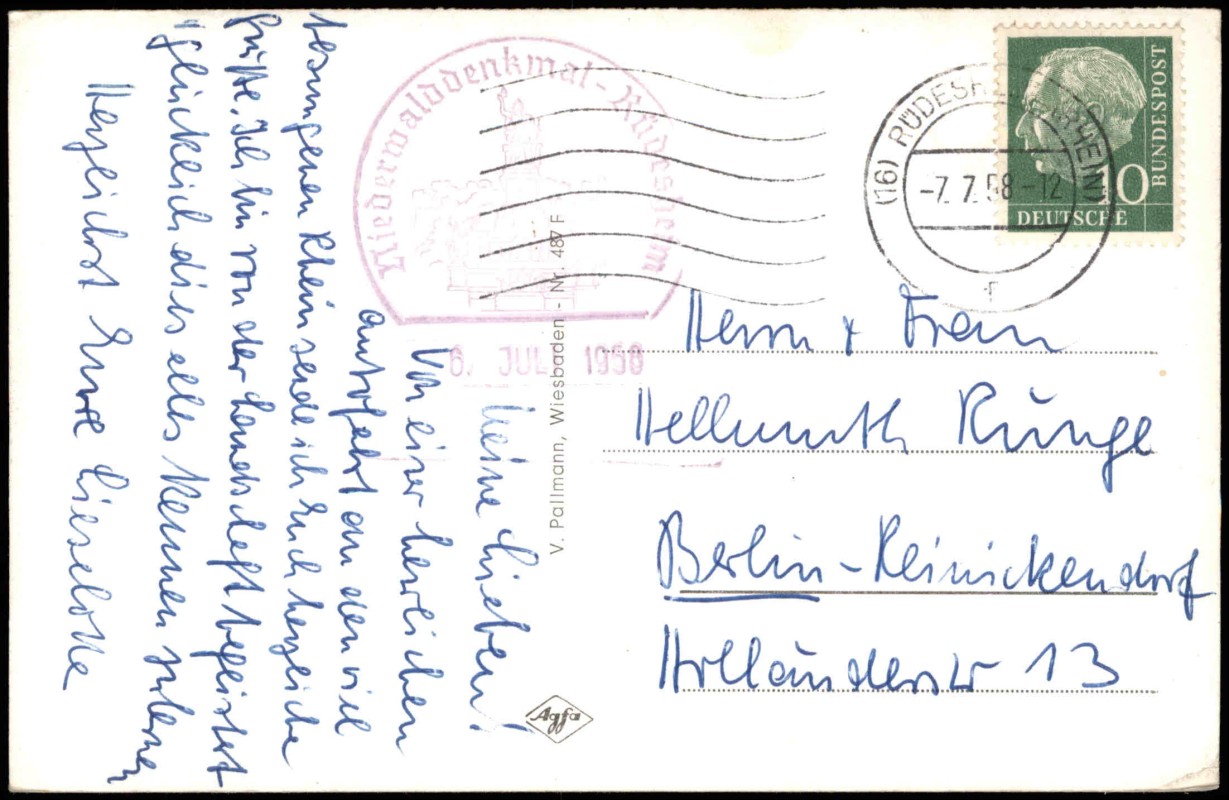 Meine Lieben!
Von einer herrlichen
Autofahrt an den viel
besungenen Rhein sende ich Euch herzliche
Grüße. Ich bin von der Landschaft begeistert
glücklich dies alles kennen zu lernen
Herzlichst Eure Lieselotte
Niederwalddenkmal-Rüdesheim
6. JULI 1958
V. Pallmann, Wiesbaden - Nr. 487 F
Agfa
(16) RÜDESHEIM (RHEIN)
-7.7.58-12
r
DEUTSCHE
BUNDESPOST
Herrn + Frau
Hellmuth Runge
Berlin-Reinickendorf
Holländerstr 13